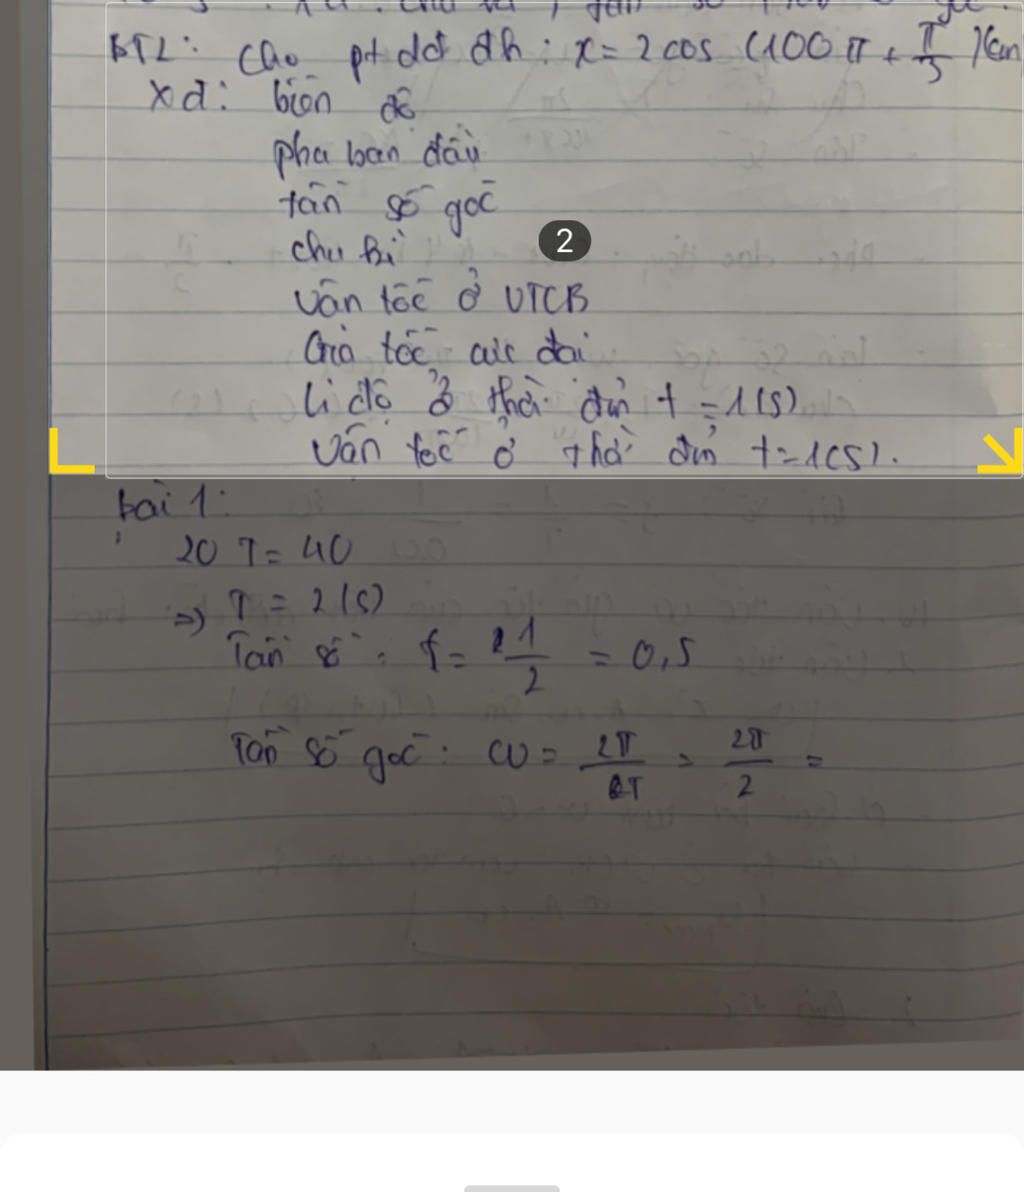 BT2: Cho pt dđ đh: x = 2 cos (100 π + π/3) (cm
Xđ: biên độ
pha ban đầu
tần số góc
chu kì
2
Vân tốc ở VTCB
Gia tốc cực đai
Li độ ở thời điể t = 1(s)
Vân tốc ở thời điể t = 1(s).
bài 1:
20 T = 40
=> T = 2 (s)
Tần số : f = 1/2 = 0,5
Tần số góc : ω = 2π/T = 2π/2 =